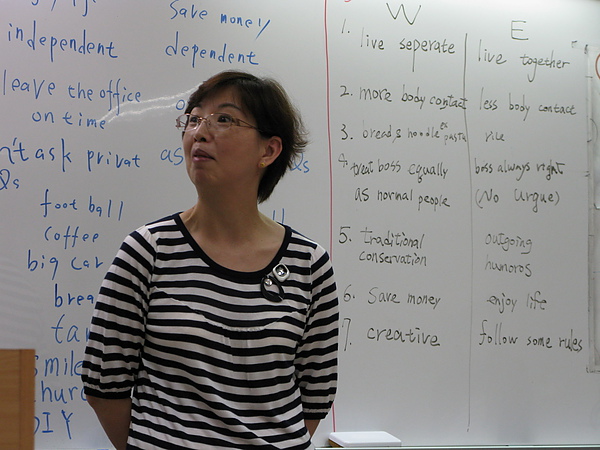 independent
Save money
dependent
leave the office
on time
n't ask privat
as
Qs
foot ball
coffee
big car
brea
smile
DIY
W E
1. live seperate live together
2. more body contact less body contact
3. bread, & noodle pasta rice
4 treat boss equally boss always right
as normal people (No Urgue)
5. traditional outgoing
conservation humoros
6. Save money enjoy life
7. creative follow some rules